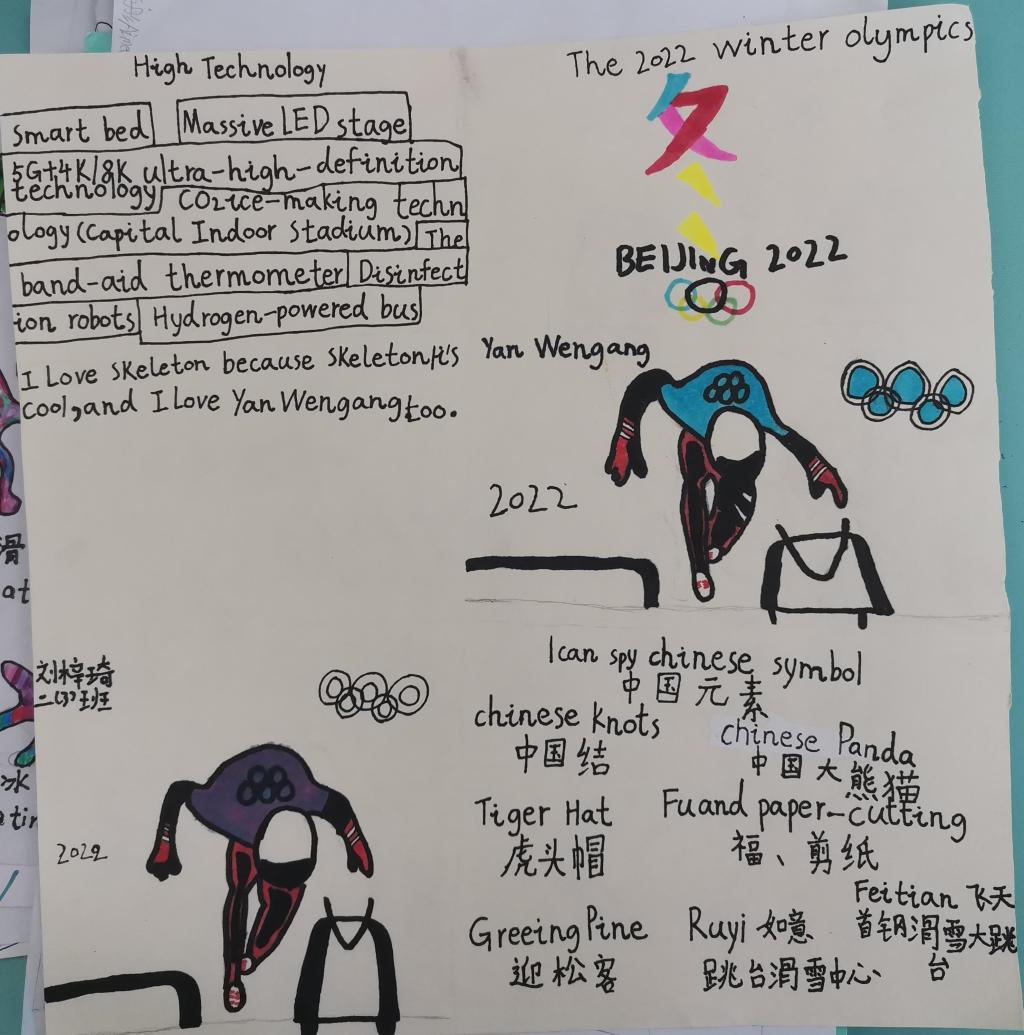 High Technology
smart bed Massive LED stage
5G+4K/8K ultra-high-definition
technology CO2ice-making techn
ology (Capital Indoor Stadium) The
band-aid thermometer Disinfect
ion robots Hydrogen-powered bus
I Love skeleton because skeleton,it's
cool, and I Love Yan Wengang too.
The 2022 winter olympics
BEIJING 2022
Yan Wengang
2022
刘梓琦
二(3)班
2022
I can spy chinese symbol
中国元素
chinese knots
中国结
chinese Panda
中国大熊猫
Tiger Hat
虎头帽
Fu and paper-cutting
福、剪纸
Greeing Pine
迎松客
Ruyi 如意
跳台滑雪中心
Feitian 飞天
首钢滑雪大跳
台
滑
at
冰
atin